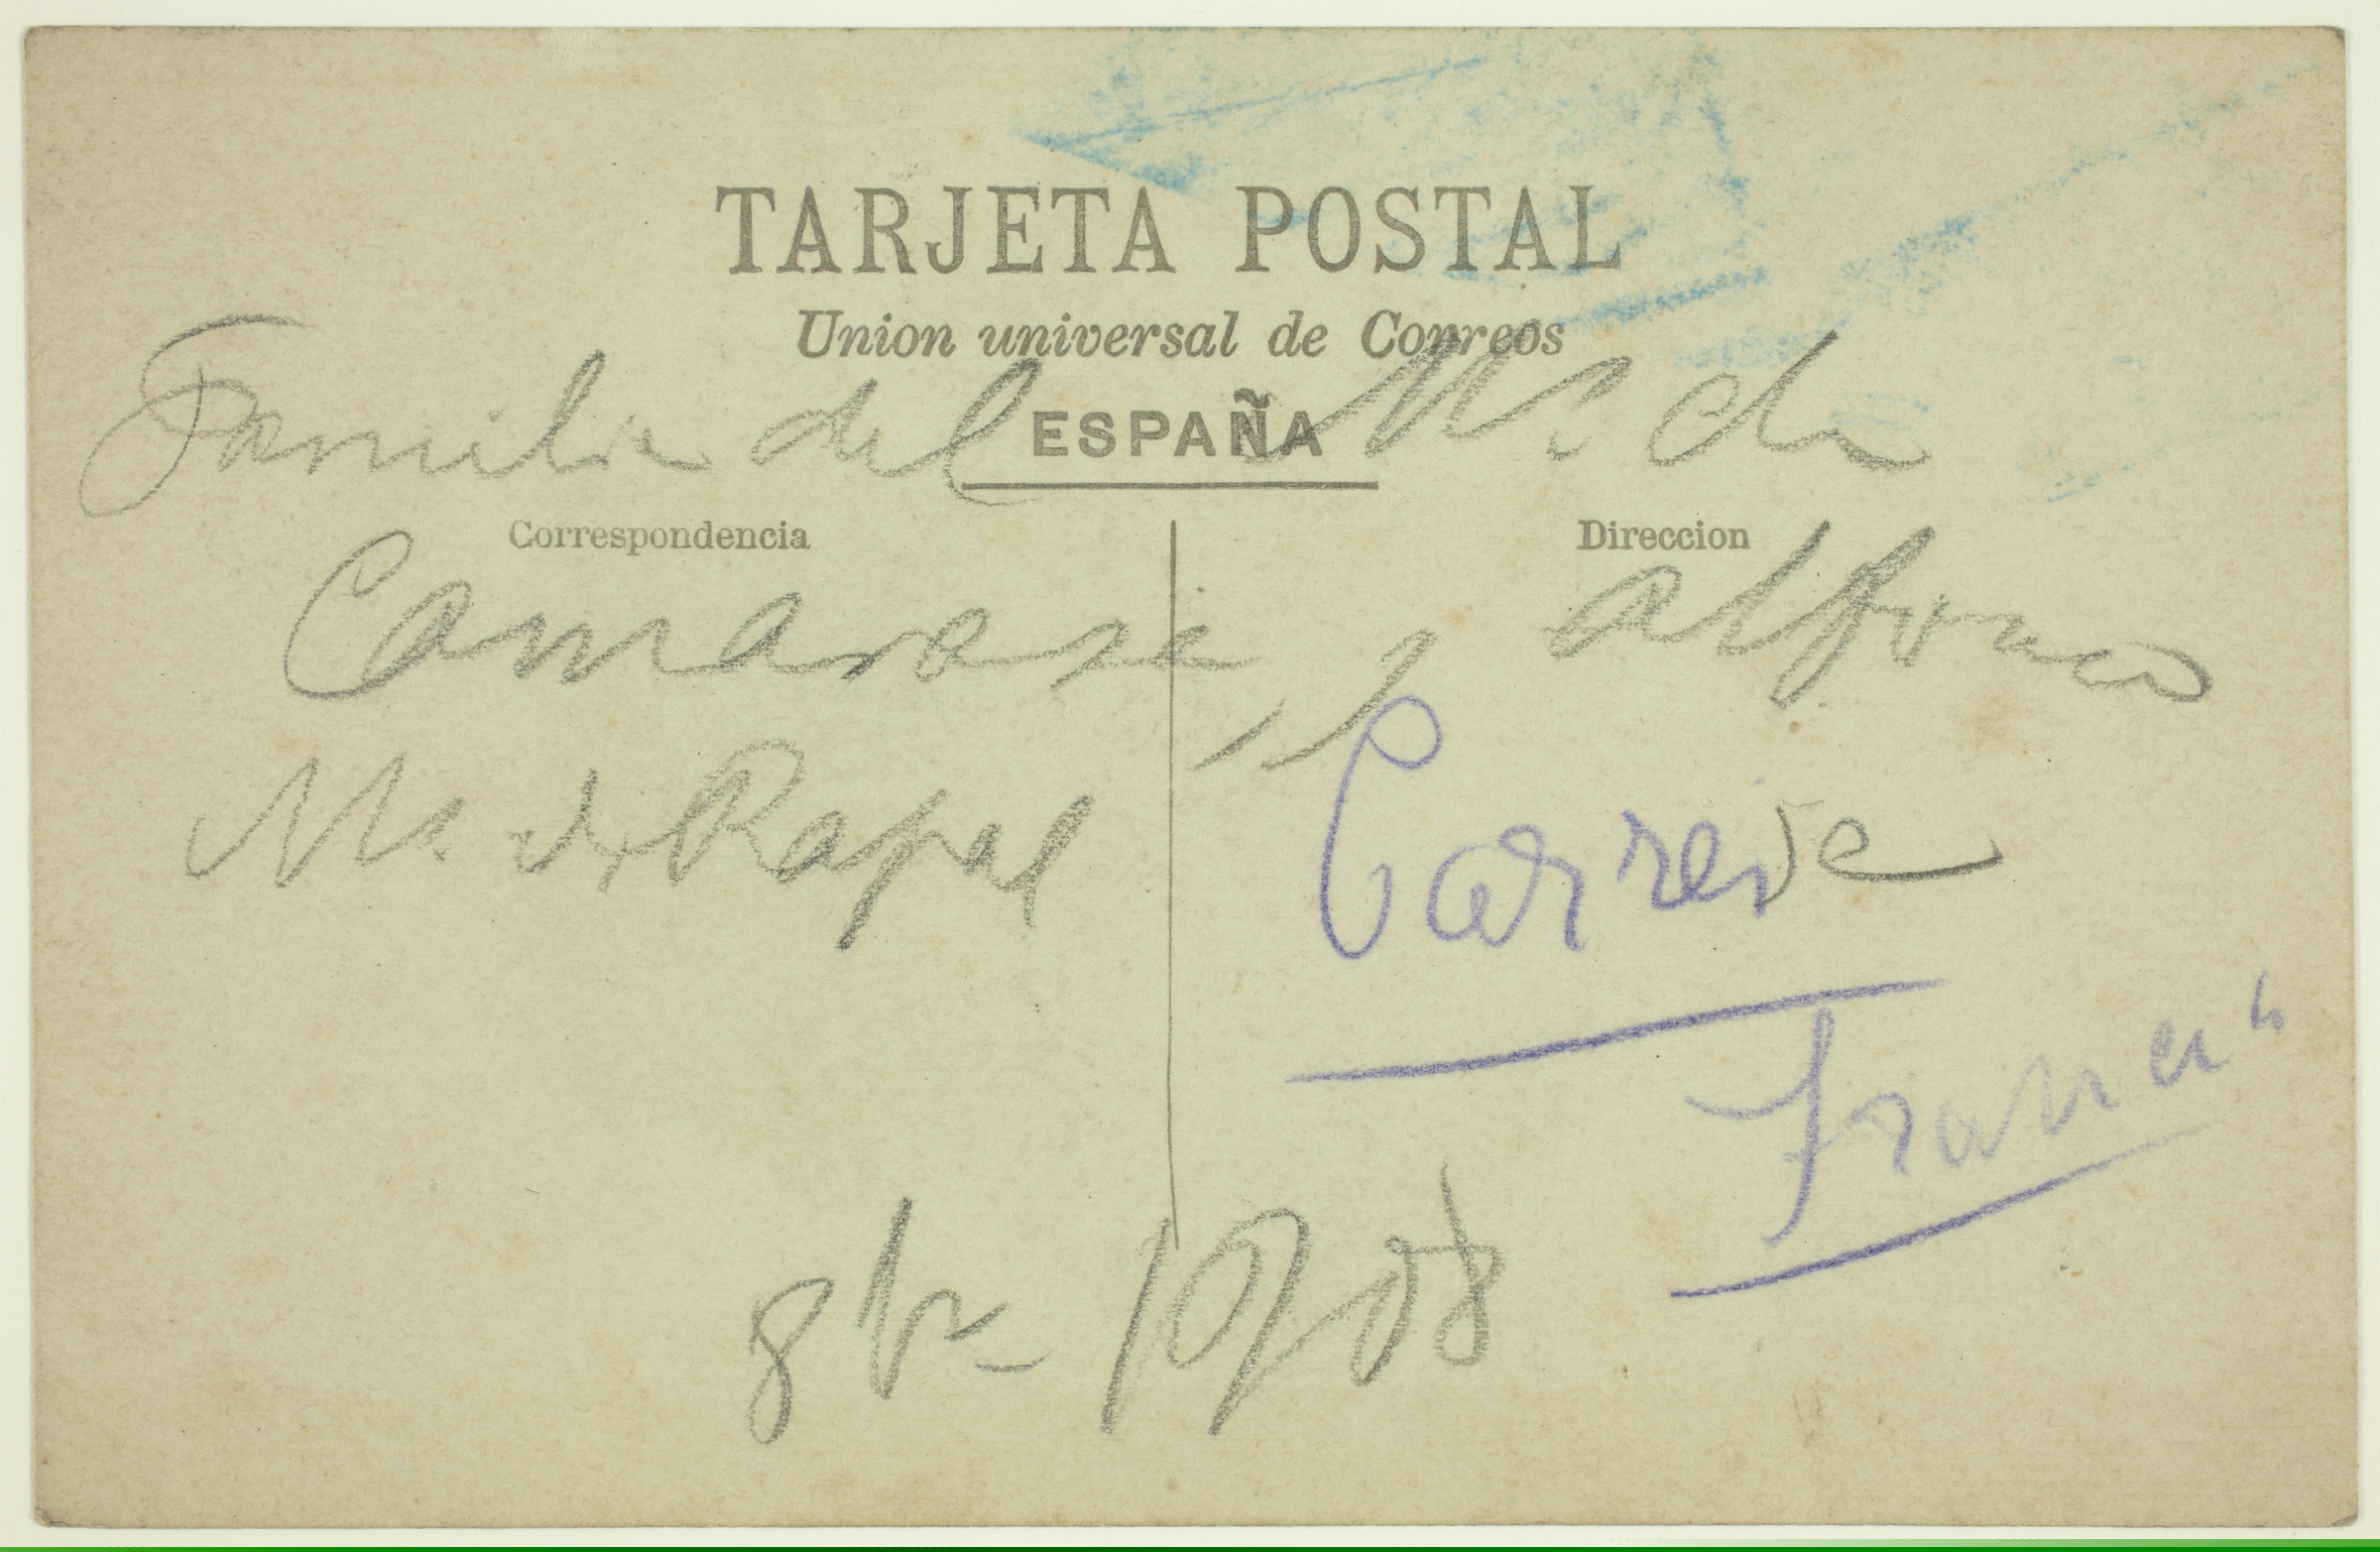 TARJETA POSTAL
Union universal de Correos
ESPAÑA
Correspondencia
Direccion
Familia del M. de
Camarasa, y Alfonso
M. de Rafal
8 bre 1908